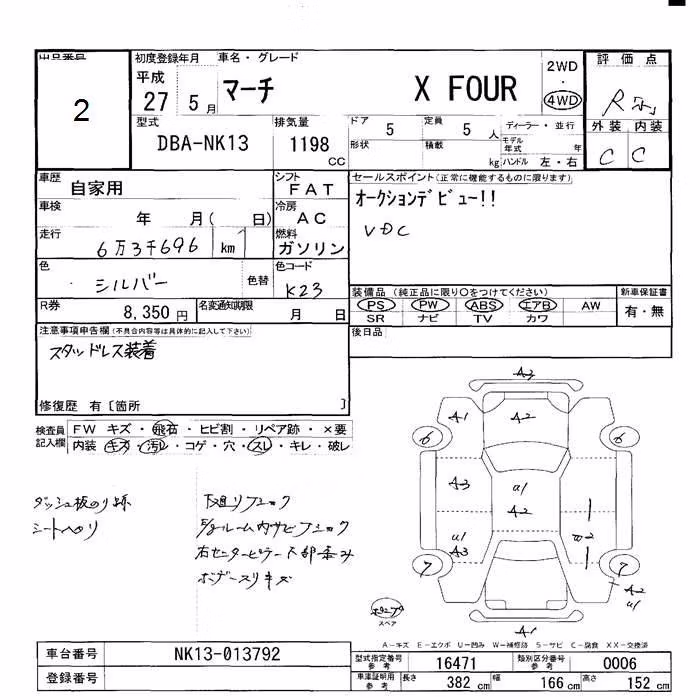 出品番号
2
初度登録年月
平成
27 5月
車名・グレード
マーチ X FOUR
2WD
・
4WD
評価点
R
外装 内装
C C
型式
DBA-NK13
排気量
1198 CC
ドア
5
定員
5 人
形状
積載
kg
ディーラー・並行
モデル年式 年
ハンドル 左・右
車歴
自家用
シフト
FAT
車検
年 月( 日)
冷房
AC
走行
6万3千696 km
燃料
ガソリン
色
シルバー
色替
色コード
K23
R券
8,350円
名変通知期限
月 日
セールスポイント(正常に機能するものに限ります)
オークションデビュー!!
VDC
装備品 (純正品に限り○をつけてください)
PS PW ABS エアB AW
SR ナビ TV カワ
新車保証書
有・無
後日品
注意事項申告欄(不具合内容等は具体的に記入して下さい)
スタッドレス装着
修復歴 有〔箇所 〕
検査員記入欄
FW キズ・飛石・ヒビ割・リペア跡・×要
内装 キズ・汚レ・コゲ・穴・スレ・キレ・破レ
ダッシュ板のり跡
シートヘリ
下廻りフック
E/gルーム内サビフック
右センターピラー下部歪み
ボデースリキズ
A3
A1
A2
6
6
A3
U1
A2
U1
A3
W2
7
7
A2
U1
A1
スペア
A-キズ E-エクボ U-凹み W-補修跡 S-サビ C-腐食 XX-交換済
車台番号
NK13-013792
登録番号
型式指定番号参考
16471
類別区分番号参考
0006
車庫証明用参考
長さ 382 cm
幅 166 cm
高さ 152 cm